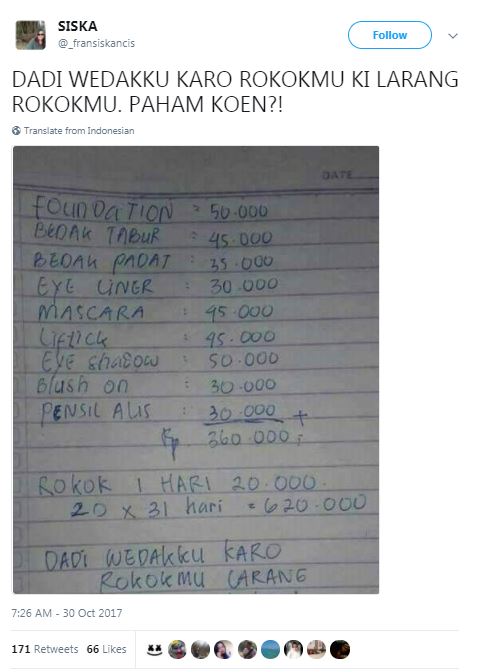 SISKA
@_fransiskancis
Follow
DADI WEDAKKU KARO ROKOKMU KI LARANG
ROKOKMU. PAHAM KOEN?!
Translate from Indonesian
DATE
FOUNDATION = 50.000
BEDAK TABUR : 45.000
BEDAK PADAT : 35.000
EYE LINER : 30.000
MASCARA : 45.000
Liftick : 45.000
EYE shadow : 50.000
Blush on : 30.000
PENSIL ALIS : 30.000 +
Rp. 360.000,-
ROKOK 1 HARI 20.000.
20 x 31 hari = 620.000
DADI WEDAKKU KARO
ROKOKMU LARANG
7:26 AM - 30 Oct 2017
171 Retweets 66 Likes